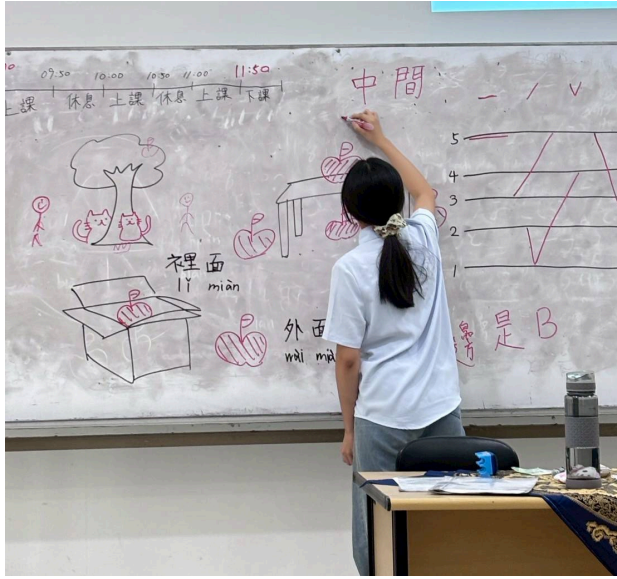 09:50 10:00 10:50 11:00 11:50
上課 休息 上課 休息 上課 下課
中間
5
4
3
2
1
裡面
lǐ miàn
外面
wài
邊 是 B